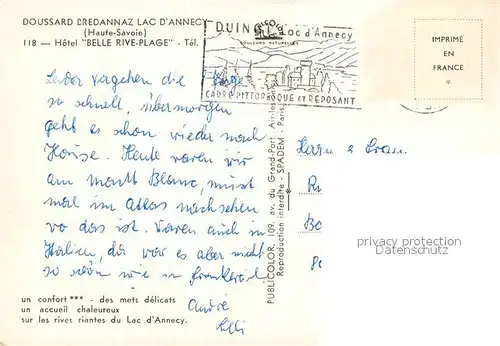 DOUSSARD BREDANNAZ LAC D'ANNECY
(Haute-Savoie)
118 — Hôtel "BELLE RIVE-PLAGE" - Tél.
COULEURS NATURELLES
DUIN
Lac d'Annecy
CADRE PITTORESQUE ET REPOSANT
IMPRIMÉ
EN
FRANCE
Leider vergehen die Tage
so schnell, übermorgen
geht es schon wieder nach
Hause. Heute waren wir
am Mont Blanc, müsst
mal im Atlas nachsehen
wo das ist. Waren auch in
Italien, da war es aber nicht
so schön wie in Frankreich
André
Lilli
PUBLICOLOR, 109, av. du Grand-Port, Aix
Reproduction interdite - SPADEM - Paris
Herrn u. Frau
R
Bo
80
privacy protection
Datenschutz
un confort *** - des mets délicats
un accueil chaleureux
sur les rives riantes du Lac d'Annecy.